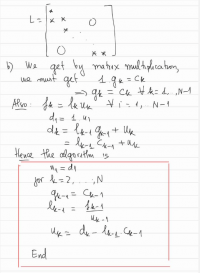 L =
b) We get by matrix multiplication,
we must get 1 g_k = c_k
⇒ g_k = c_k ∀ k=1..N-1
Also f_k = l_k u_k ∀ i = 1, N-1
d_1 = 1 u_1
d_k = l_{k-1} g_{k-1} + u_k
= l_{k-1} c_{k-1} + u_k
Hence the algorithm is
u_1 = d_1
for k = 2, ..., N
g_{k-1} = c_{k-1}
l_{k-1} = f_{k-1} / u_{k-1}
u_k = d_k - l_{k-1} c_{k-1}
End